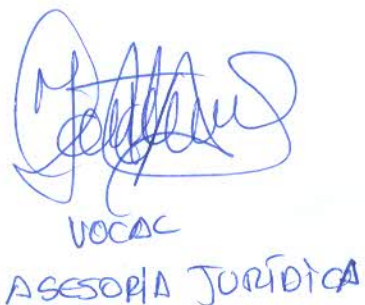 VOCAL
ASESORÍA JURÍDICA